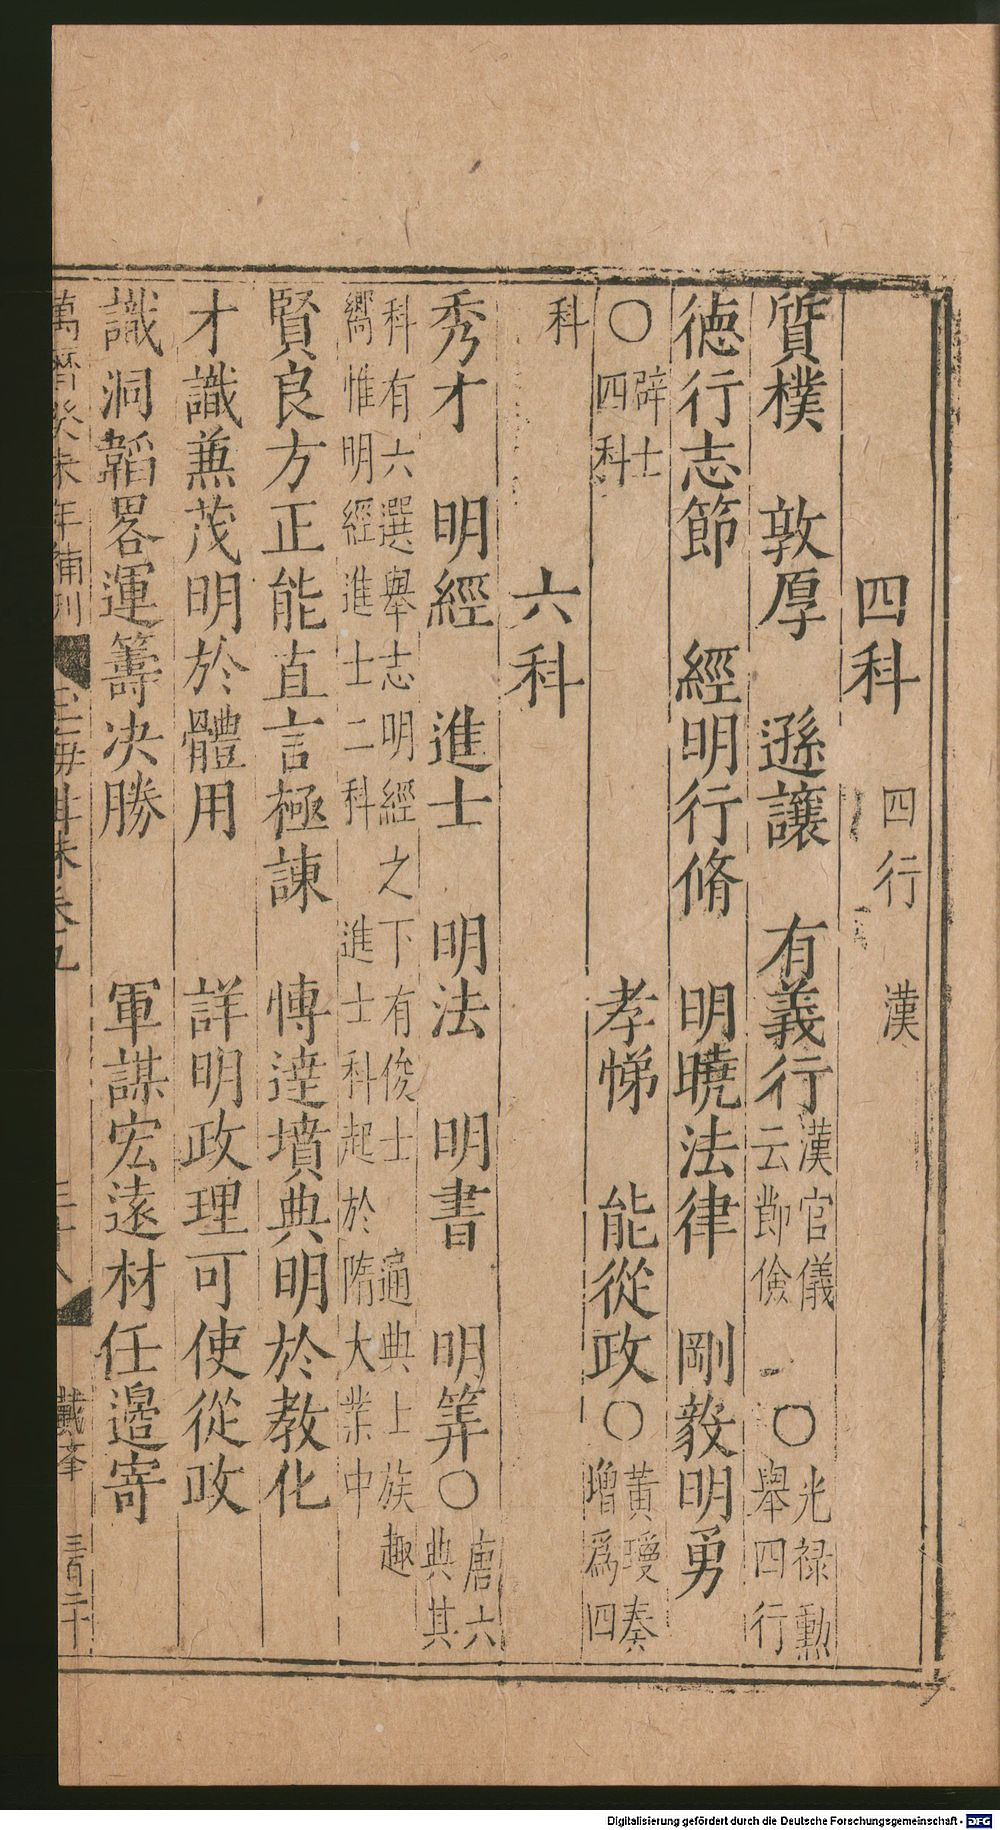 四科　四行　漢
質樸　敦厚　遜讓　有義行漢官儀云鄼儉〇光禄勳舉四行
徳行志節　經明行脩　明曉法律　剛毅明勇
〇辟士四科　孝悌　能從政〇黃瓊奏增爲四
科　六科
秀才　明經　進士　明法　明書　明筭〇唐六典其
科有六選舉志明經之下有俊士　通典上族趣
嚮惟明經進士二科　進士科起於隋大業中
賢良方正能直言極諫　慱達墳典明於教化
才識兼茂明於體用　詳明政理可使從政
識洞韜畧運籌决勝　軍謀宏遠材任邉寄
萬曆癸未年補刊　玉海　卷　戴峯　三百二十
Digitalisierung gefördert durch die Deutsche Forschungsgemeinschaft - DFG